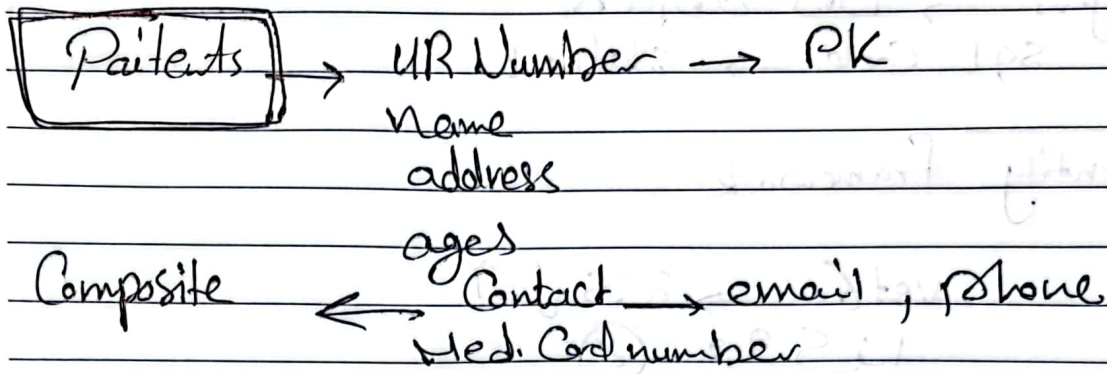 Paitents → UR Number → PK
name
address
ages
Composite ← Contact → email, phone
Med. Card number